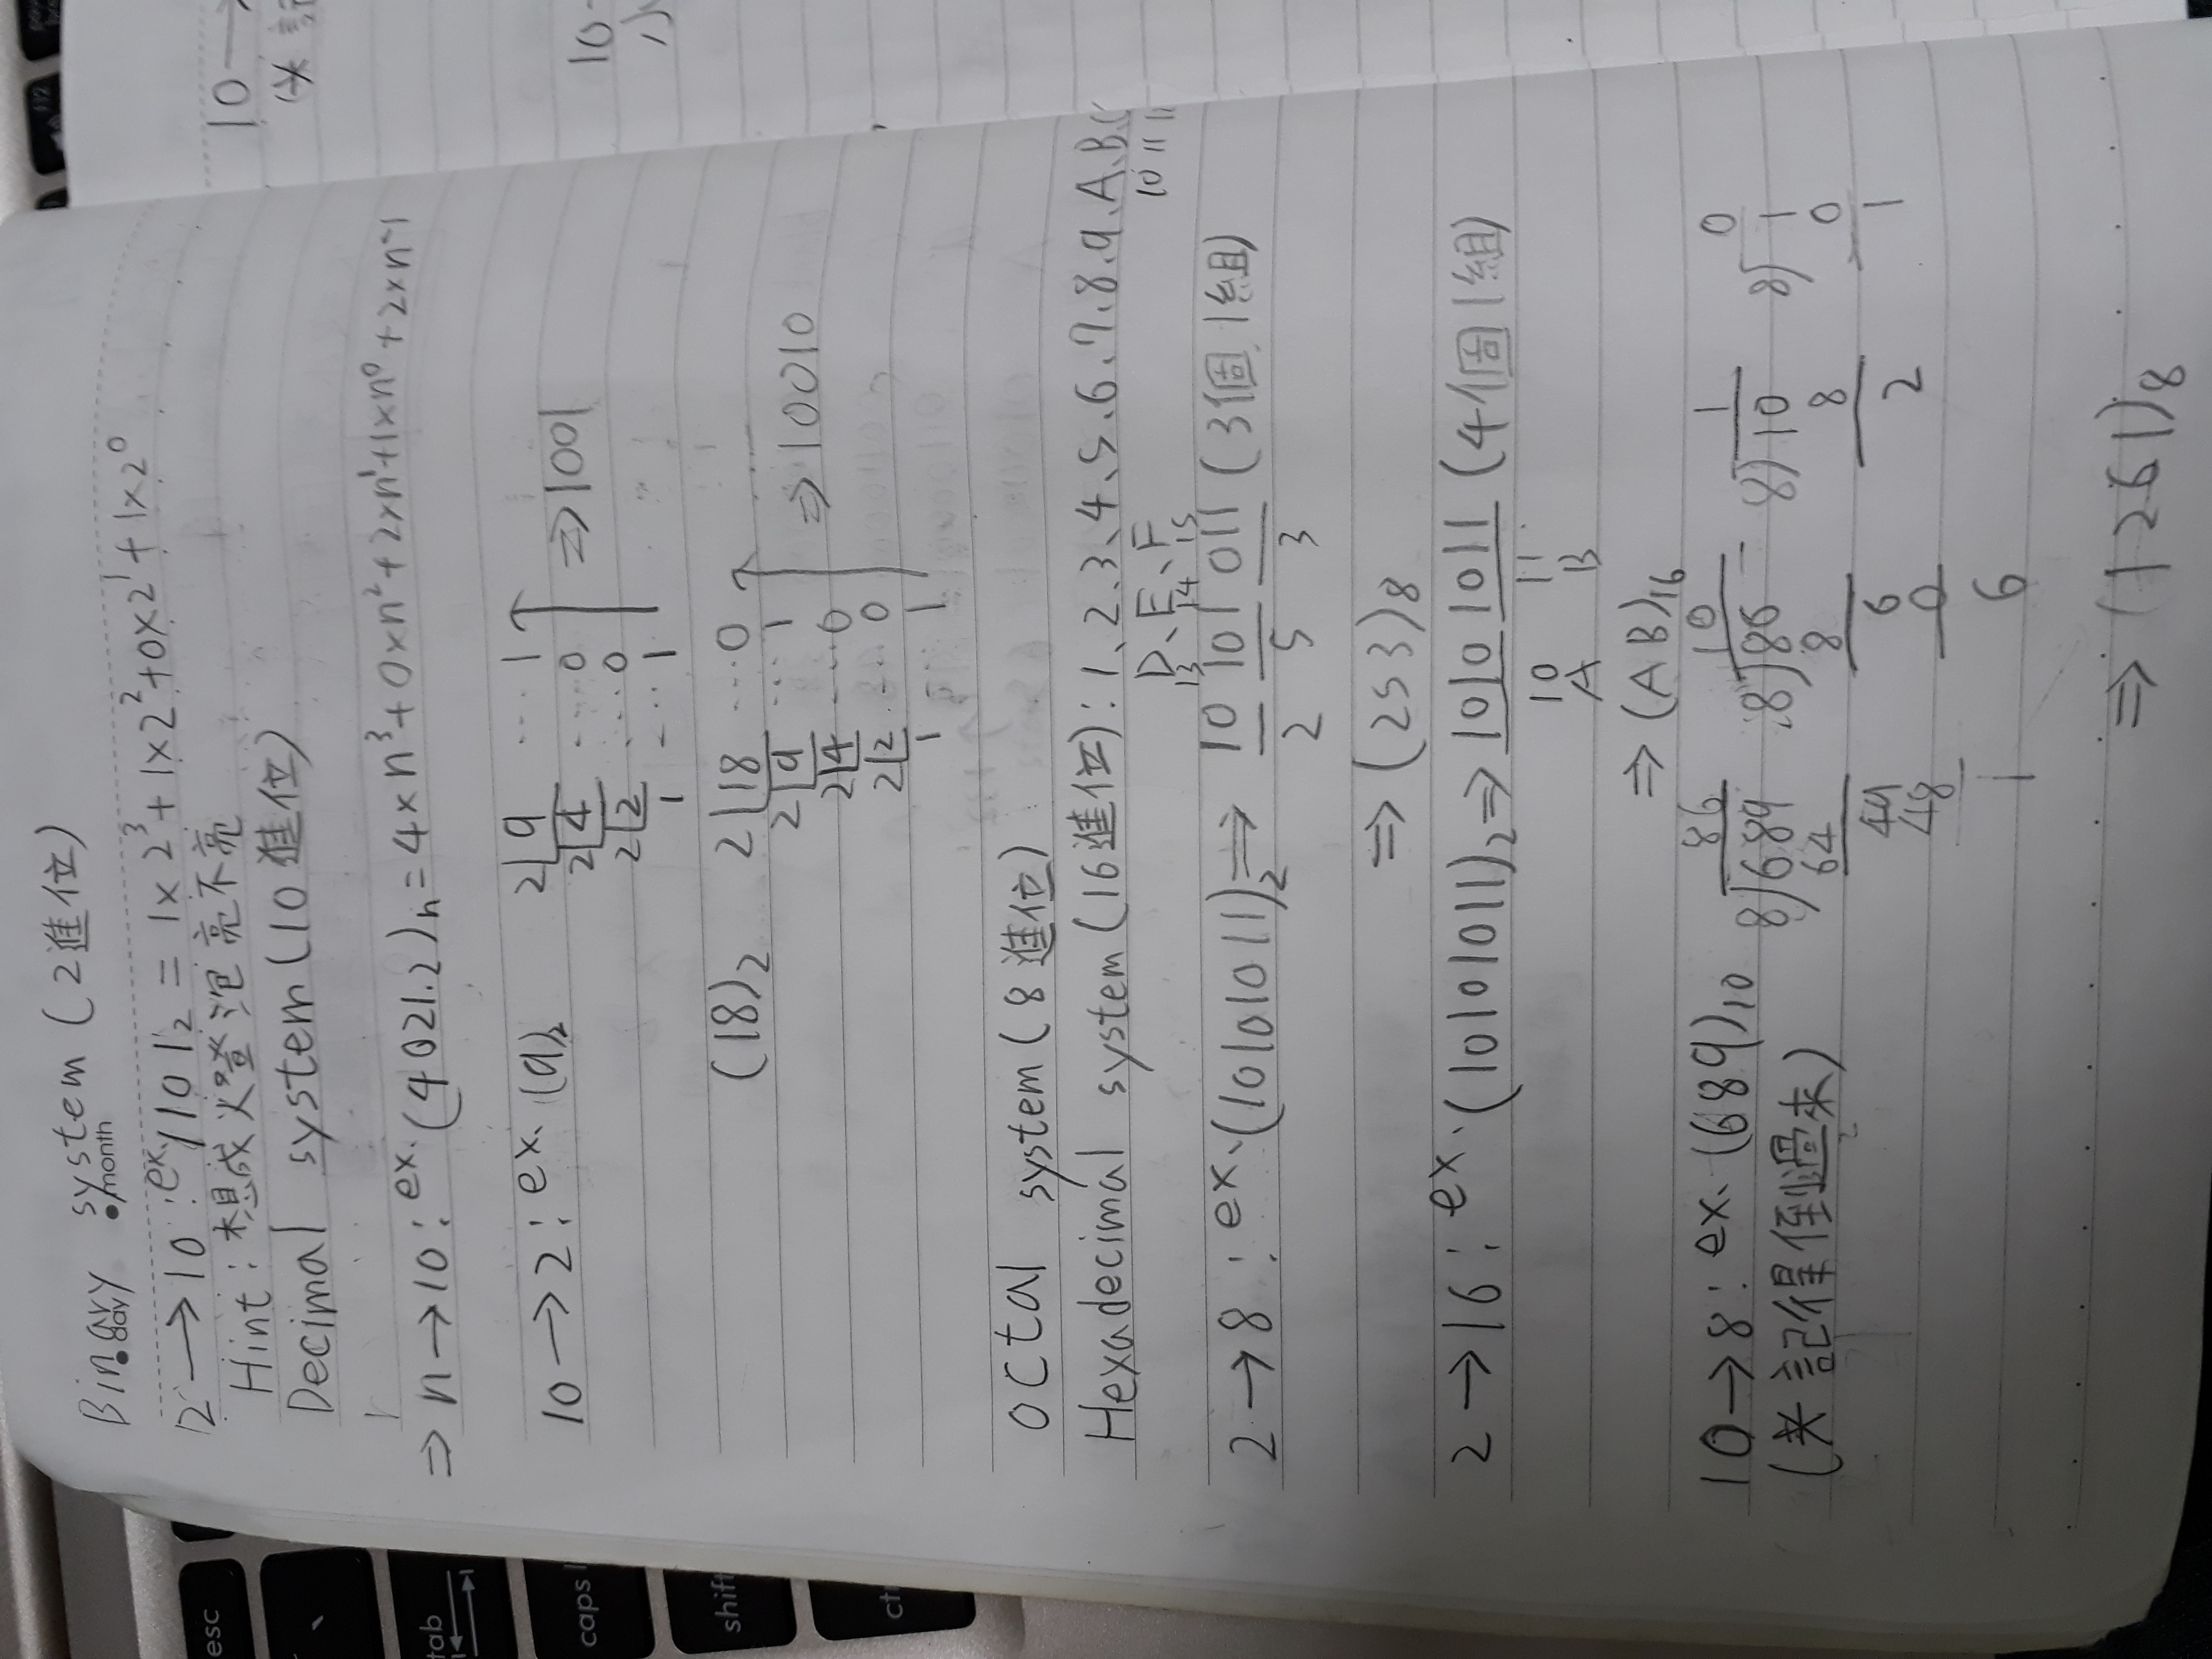 Binary system (2進位)
day month
2 → 10 : ex. 1101₂ = 1×2³ + 1×2² + 0×2¹ + 1×2⁰
Hint : 想成火登泡亮不亮
Decimal system (10進位)
⇒ n → 10 : ex. (4021.2)ₙ = 4×n³ + 0×n² + 2×n¹ + 1×n⁰ + 2×n⁻¹
10 → 2 : ex. (9)₂ 2 9 ... 1
2 4 ... 0 ⇒ 1001
2 2 ... 0
1 ... 1
(18)₂ 2 18 ... 0
2 9 ... 1
2 4 ... 0 ⇒ 10010
2 2 ... 0
1 ... 1
octal system (8進位)
Hexadecimal system (16進位) : 1、2、3、4、5、6、7、8、9、A、B、
10 11
D、E、F
13 14 15
2 → 8 : ex. (10101011)₂ ⇒ 10 101 011 (3個1組)
2 5 3
⇒ (253)₈
2 → 16 : ex. (10101011)₂ ⇒ 1010 1011 (4個1組)
10 11
A B
⇒ (AB)₁₆
86 10 1 0
10 → 8 : ex. (689)₁₀ 8)689 8)86 8)10 8)1
(* 記得倒過來) 64 8 8 0
49 6 2 1
48 0
1 6
⇒ (1261)₈
10 →
(* 記
10
esc
tab
caps l
shift
ctr
f12